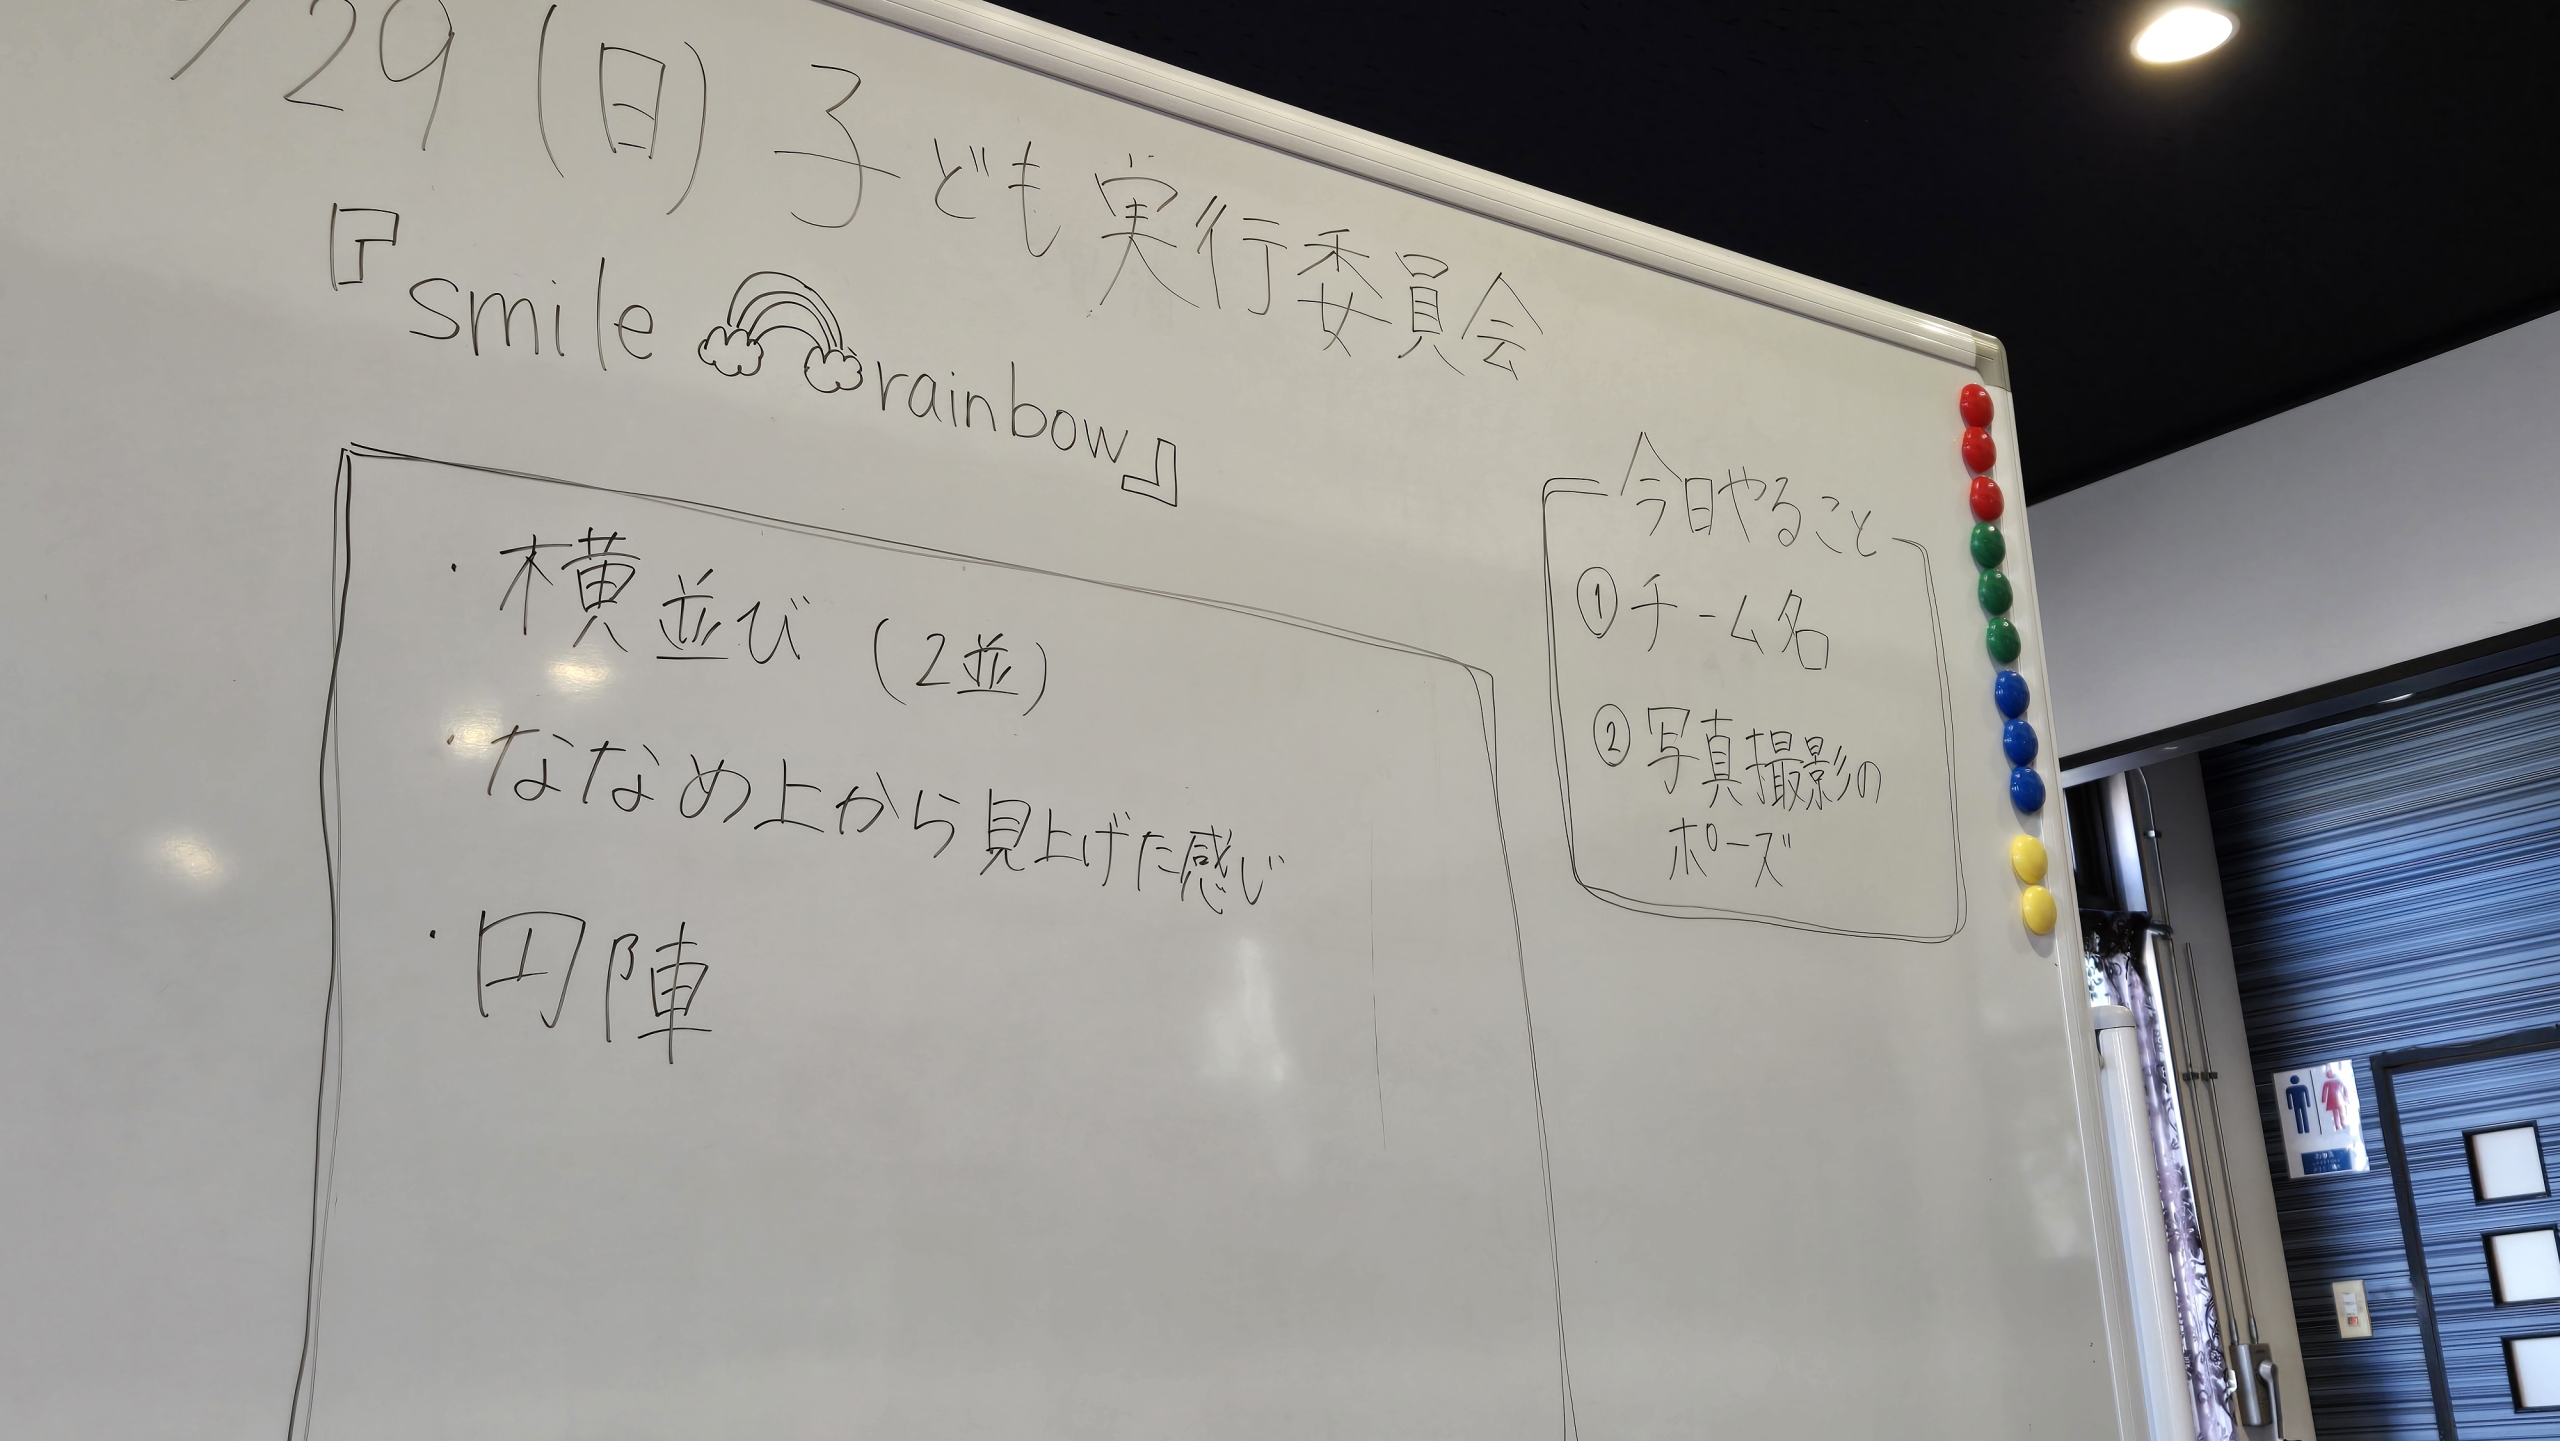 /29(日)子ども実行委員会
『smile rainbow』
・横並び(2並)
・ななめ上から見上げた感じ
・円陣
今日やること
①チーム名
②写真撮影の
ポーズ